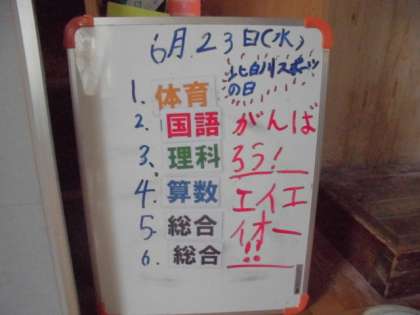 6月.23日(水)
北白川スポーツ
の日
1.体育
2.国語 がんば
3、理科 ろう!
4.算数 エイエ
5.総合 イオー
6.総合 !!